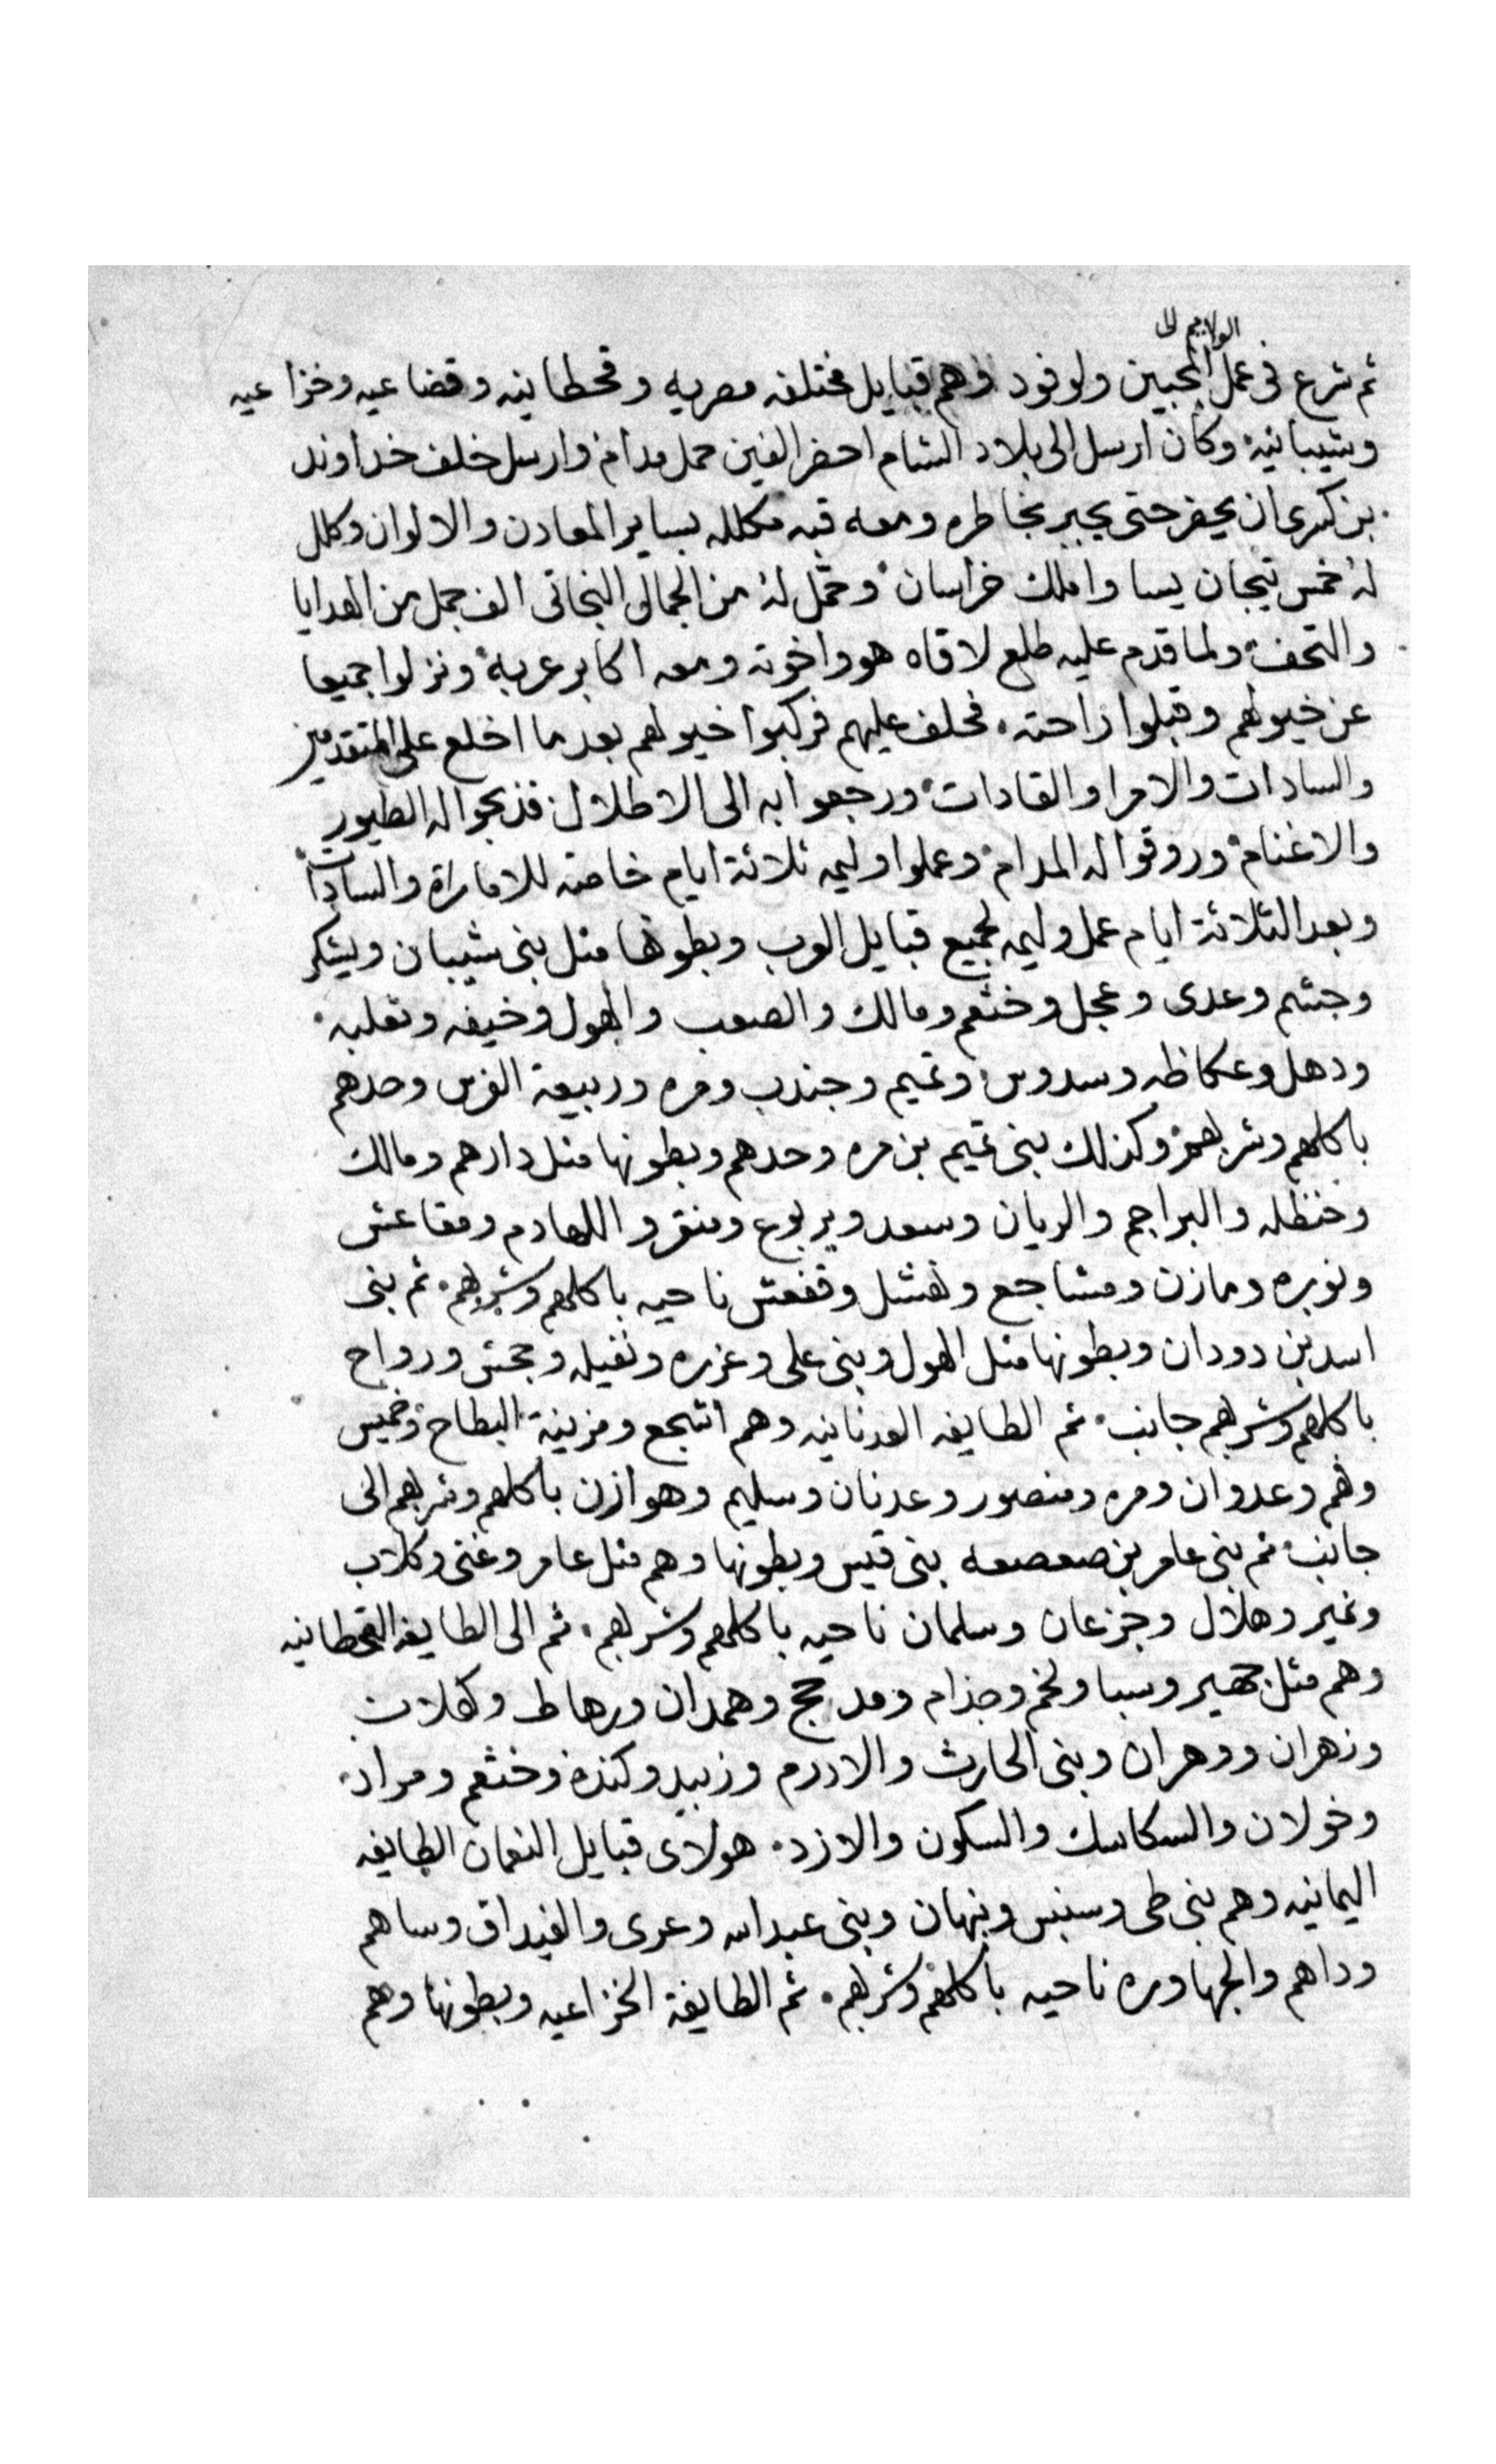 الولايم الى
ثم شرع فى عمل المجيين ولوفود وهم قبايل مختلفه مصريه وقحطانيه وقضاعيه وخزاعيه
وشيبانيه وكان ارسل الى بلاد الشام احضر الفين حمل مدام وارسل خلف خداوند
بن كسرى ان يحضر حتى يجبر بخاطره ومعه قبه مكلله بساير المعادن والالوان وكلل
له خمس تيجان يسا واملك خراسان وحمل له من الجمال البخاتى الف جمل من الهدايا
والتحف ولما قدم عليه طلع لاقاه هو واخوته ومعه اكابر عربه ونزلوا جميعا
عن خيولهم وقبلوا راحته فحلف عليهم فركبوا خيولهم بعد ما اخلع على المتقدمين
والسادات والامرا والقادات ورجعوا به الى الاطلال فذبحوا له الطيور
والاغنام وروقوا له المدام وعملوا وليمه ثلاثة ايام خاصة للاماراة والسادات
وبعد الثلاثة ايام عمل وليمه لجميع قبايل العرب وبطونها مثل بنى شيبان ويشكر
وجشم وعدى وعجل وخثعم ومالك والصعب والهول وخيفه وتعلبه
ودهل وعكاظه وسدوس وتميم وجندب ومره وربيعة الفرس وحدهم
باكلهم وشربهم وكذلك بنى تميم بن مره وحدهم وبطونها مثل دارهم ومالك
وخنظله والبراجم والريان وسعد ويربوع ومنقر واللهادم ومقاعش
ونويره ومازن ومشاجع ونهشل وفقعش ناحيه باكلهم وشربهم ثم بنى
اسد بن دودان وبطونها مثل الهول وبنى على وعزره ونفيله وجحش ورواح
باكلهم وشربهم جانب ثم الطايفه العدنانيه وهم اشجع ومزينة البطاح وخميس
وفهم وعدوان ومره ومنصور وعدنان وسليم وهوازن باكلهم وشربهم الى
جانب ثم بنى عامر بن صعصعه بنى قيس وبطونها وهم مثل عامر وغنى وكلاب
ونمير وهلال وجزعان وسلمان ناحيه باكلهم وشربهم ثم الى الطايفه القحطانيه
وهم مثل حمير وسبا ولخم وجذام ومدحج وهمدان ورهاط وكهلان
وزهران ووهران وبنى الحارث والاددم وزبيد وكنده وخثعم ومراد
وخولان والسكاسك والسكون والازد هولاى قبايل النعمان الطايفه
اليمانيه وهم بنى طى وسنبس ونبهان وبنى عبد الله وعدى والغيداق وساهم
وداهم والجهاوره ناحيه باكلهم وشربهم ثم الطايفة الخزاعيه وبطونها وهم